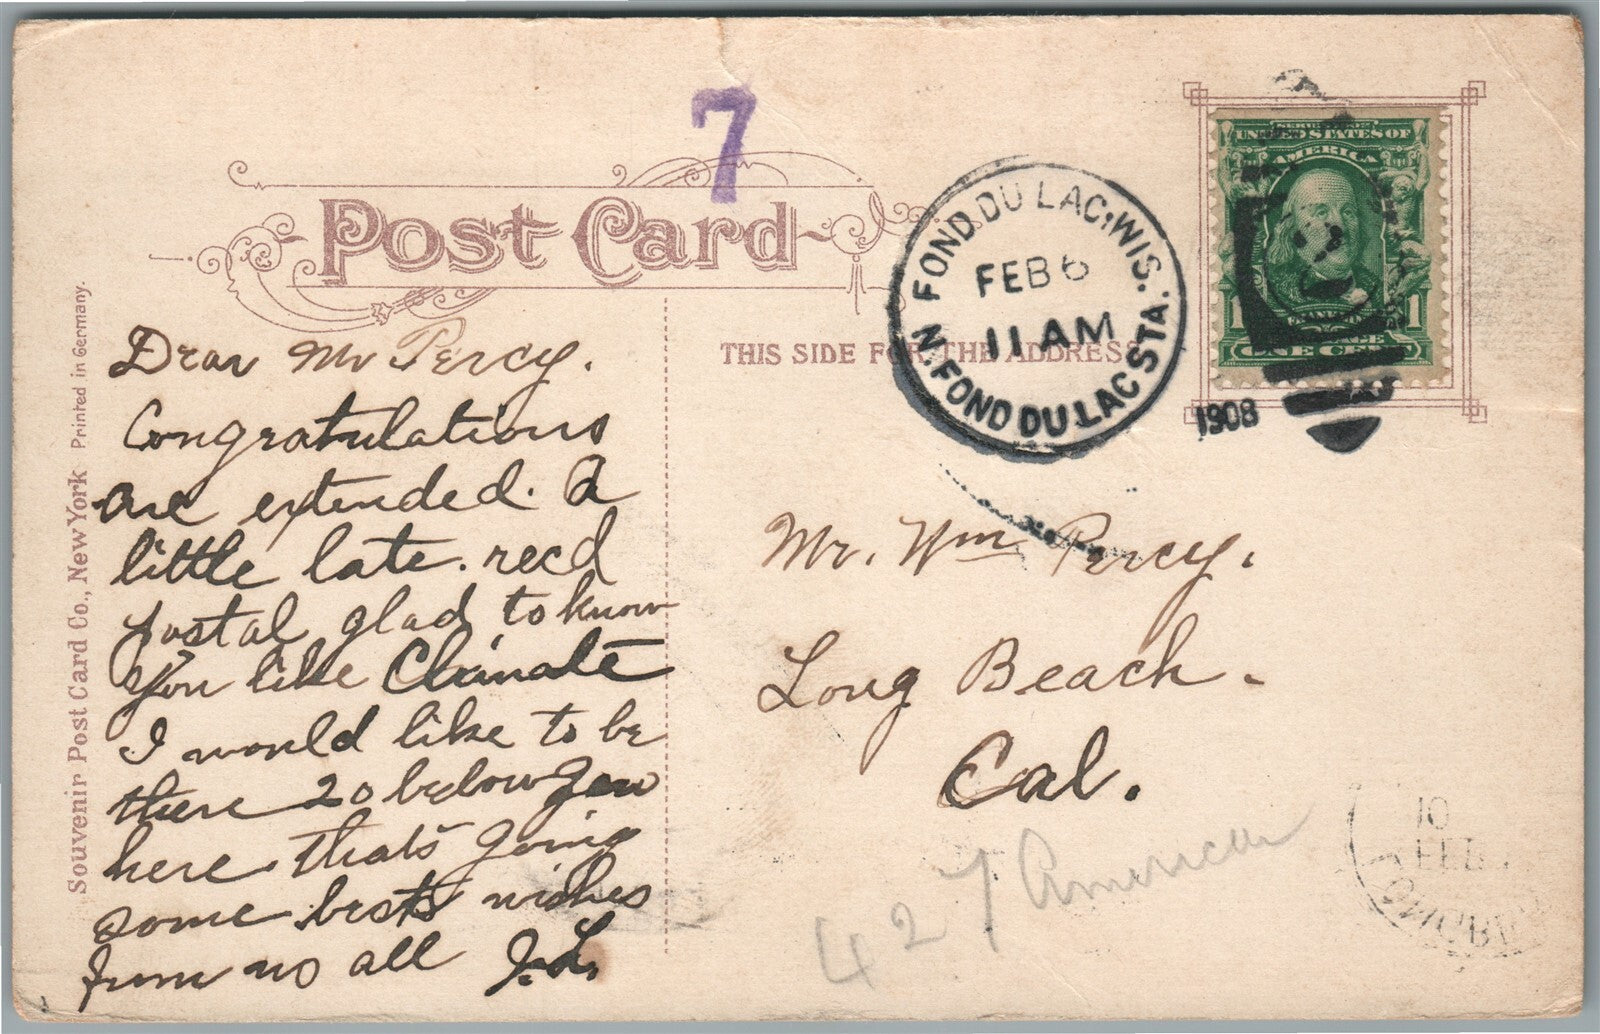 7
Post Card
THIS SIDE FOR THE ADDRESS
FOND DU LAC, WIS.
FEB 6
11 AM
N. FOND DU LAC STA.
1908
SERIES 1902
UNITED STATES OF
AMERICA
1 1
ONE CENT
Souvenir Post Card Co., New York Printed in Germany.
Dear Mr Percy.
Congratulations
are extended. a
little late. recd
postal glad to know
you like Climate
I would like to be
there 20 below
here thats going
some bests wishes
from us all J.L.
Mr. Wm Percy.
Long Beach.
Cal.
427 American
10
FEB
LONG BEA